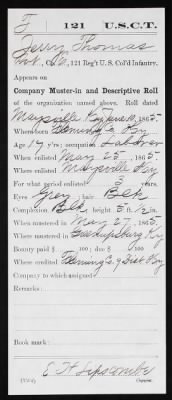 F 121 U.S.C.T.
Jerry Thomas
Pvt., Co. G, 121 Reg't U. S. Col'd Infantry.
Appears on
Company Muster-in and Descriptive Roll
of the organization named above. Roll dated
Maysville Ky June 10, 1865.
Where born Fleming Co Ky
Age 19 y'rs; occupation Laborer
When enlisted May 25, 1865.
Where enlisted Maysville Ky
For what period enlisted 3 years.
Eyes Grey; hair Blk
Complexion Blk; height 5 ft. ½ in.
When mustered in May 27, 1865.
Where mustered in Ky
Bounty paid $ 100; due $ 100
Where credited Fleming Co 9 Dist Ky
Company to which assigned
Remarks:
Book mark:
E H Lipscombe
Copyist.